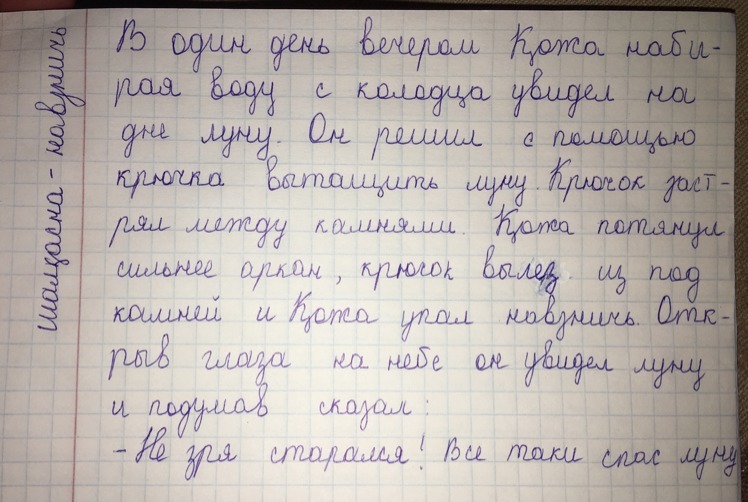 Шалқасна - навзничь
В один день вечером Қожа наби-
рая воду с колодца увидел на
дне луну. Он решил с помощью
крючка вытащить луну. Крючок заст-
рял между камнями. Қожа потянул
сильнее аркан, крючок вылез из под
камней и Қожа упал навзничь. Отк-
рыв глаза на небе он увидел луну
и подумав сказал:
- Не зря старался! Все таки спас луну